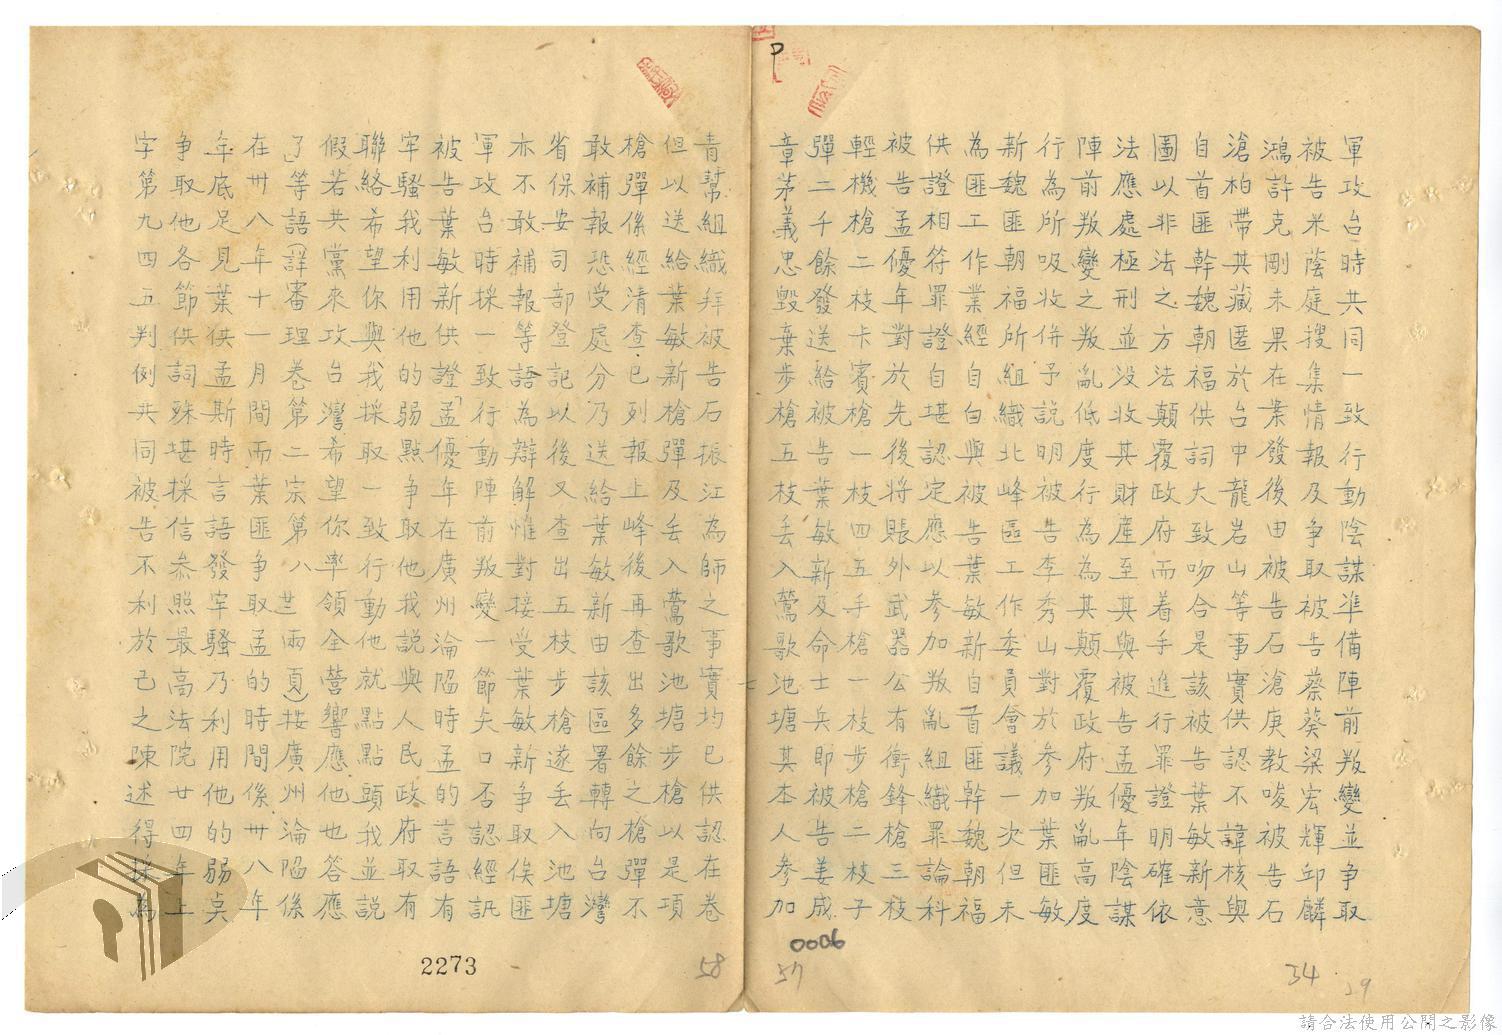 軍攻台時共同一致行動陰謀準備陣前叛變並爭取
被告米蔭庭搜集情報及爭取被告蔡葵梁宏輝邱麟
鴻許克剛未果在案發後由被告石滄庚教唆被告石
滄柏帶其藏匿於台中龍岩山等事實供認不諱核與
自首匪幹魏朝福供詞大致吻合是該被告葉敏新意
圖以非法之方法顛覆政府而着手進行罪證明確依
法應處極刑並沒收其財產至其與被告孟優年陰謀
陣前叛變之叛亂低度行為其顛覆政府叛亂高度
行為所吸收併予說明被告李秀山對於參加葉匪敏
新魏匪朝福所組織北峰區工作委員會議一次但未
為匪工作業經自白與被告葉敏新自首匪幹魏朝福
供證相符罪證自堪認定應以參加叛亂組織罪論科
被告孟優年對於先後將賬外武器公有衝鋒槍三枝
輕機槍二枝卡賓槍一枝四五手槍一枝步槍二枝子
彈二千餘發送給被告葉敏新及命士兵即被告姜成
章茅義忠毀棄步槍五枝丟入鶯歌池塘其本人參加
青幫組織拜被告石振江為師之事實均已供認在卷
但以送給葉敏新槍彈及丟入鶯歌池塘步槍以是項
槍彈係經清查已列報上峰後再查出多餘之槍彈不
敢補報恐受處分乃送給葉敏新由該區署轉向台灣
省保安司部登記以後又查出五枝步槍遂丟入池塘
亦不敢補報等語為辯解惟對接受葉敏新爭取俟匪
軍攻台時採一致行動陣前叛變一節矢口否認經訊
被告葉敏新供證「孟優年在廣州淪陷時孟的言語有
牢騷我利用他的弱點爭取他我說與人民政府取有
聯絡希望你與我採取一致行動他就點點頭我並說
假若共黨來攻台灣希望你率領全營響應他也答應
了」等語(詳審理卷第二宗第八廿兩頁)按廣州淪陷係
在卅八年十一月間而葉匪爭取孟的時間係卅八年
年底足見葉供孟斯時言語發牢騷乃利用他的弱點
爭取他各節供詞殊堪採信參照最高法院廿四年上
字第九四五判例共同被告不利於己之陳述得採為
2273
58
57
0006
34
29
請合法使用公開之影像